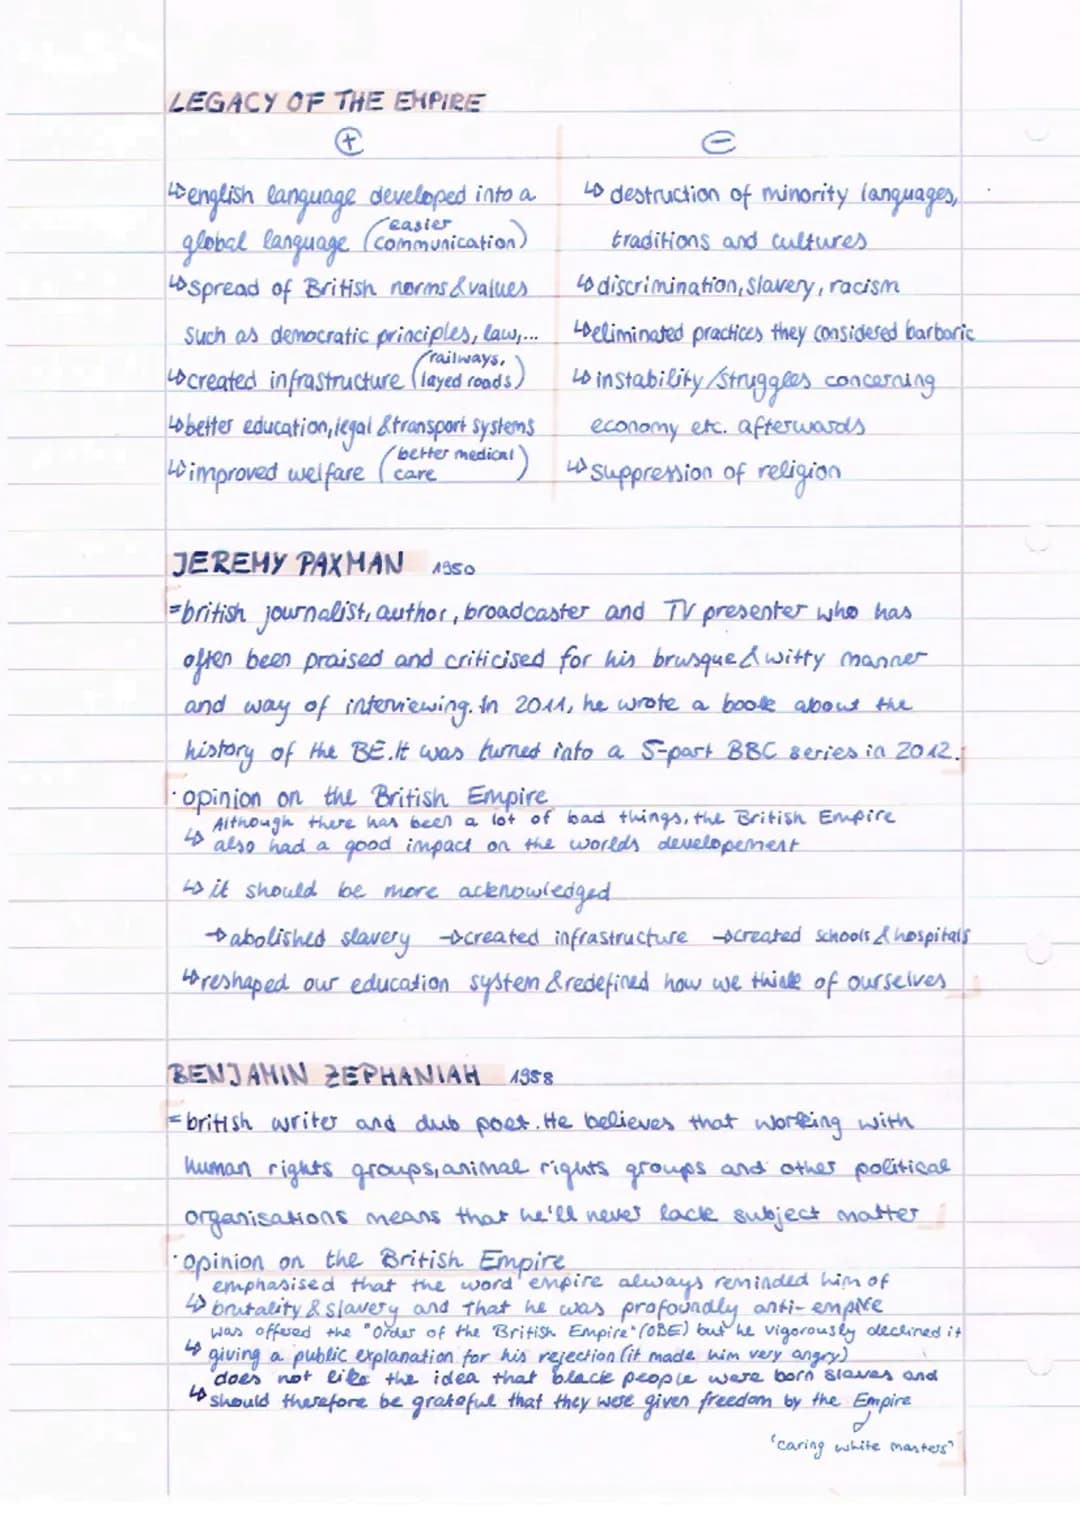 LEGACY OF THE EMPIRE
+
↳ english language developed into a
global language (easier communication)
↳ spread of British norms & values
such as democratic principles, law,...
↳ created infrastructure (railways, layed roads)
↳ better education, legal & transport systems
↳ improved welfare (better medical care)
−
↳ destruction of minority languages,
traditions and cultures
↳ discrimination, slavery, racism
↳ eliminated practices they considered barbaric
↳ instability/struggles concerning
economy etc. afterwards
↳ suppression of religion
JEREMY PAXMAN 1950
=british journalist, author, broadcaster and TV presenter who has
often been praised and criticised for his brusque & witty manner
and way of interviewing. In 2011, he wrote a book about the
history of the BE. It was turned into a 5-part BBC series in 2012.
· opinion on the British Empire
↳ Although there has been a lot of bad things, the British Empire
also had a good impact on the worlds developement
↳ it should be more acknowledged
→ abolished slavery → created infrastructure → created schools & hospitals
↳ reshaped our education system & redefined how we think of ourselves
BENJAMIN ZEPHANIAH 1958
=british writer and dub poet. He believes that working with
human rights groups, animal rights groups and other political
organisations means that he'll never lack subject matter
· opinion on the British Empire
↳ emphasised that the word empire always reminded him of
brutality & slavery and that he was profoundly anti-empire
↳ was offered the "Order of the British Empire" (OBE) but he vigorously declined it
giving a public explanation for his rejection (it made him very angry)
↳ does not like the idea that black people were born slaves and
should therefore be grateful that they were given freedom by the Empire
'caring white masters'